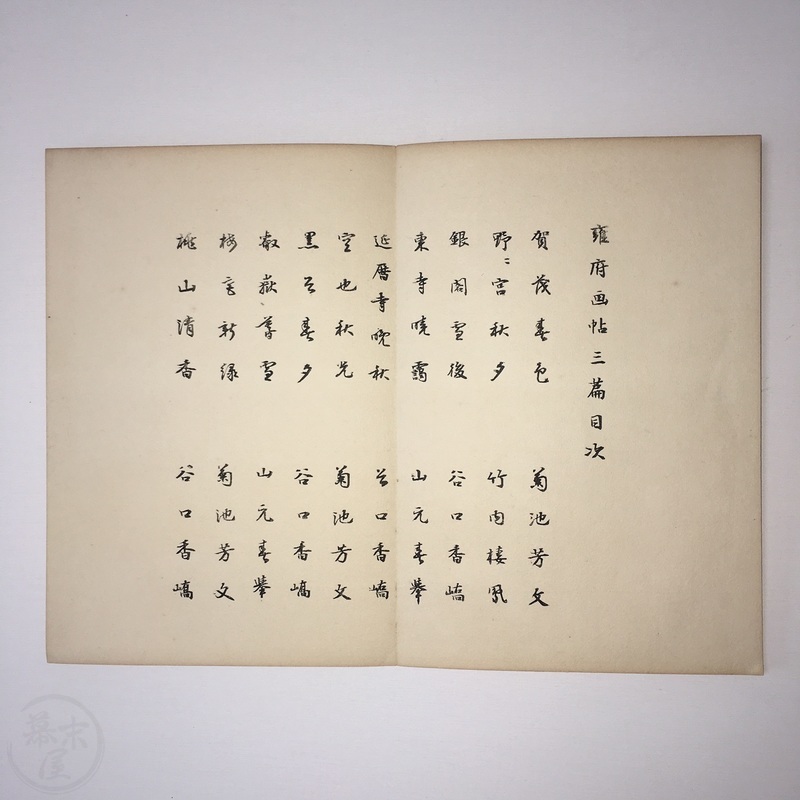 雍府画帖三篇目次
賀茂春色 菊池芳文
野〻宮秋夕 竹内棲鳳
銀閣雪後 谷口香嶠
東寺暁靄 山元春擧
延暦寺晩秋 谷口香嶠
空也秋光 菊池芳文
黒谷春夕 谷口香嶠
叡嶽暮雪 山元春擧
新緑 菊池芳文
桃山清香 谷口香嶠
幕末屋